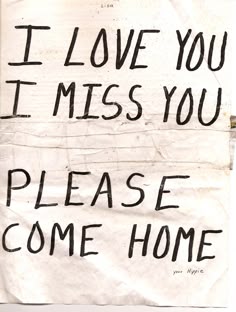 I LOVE YOU
I MISS YOU
PLEASE
COME HOME
your Hippie